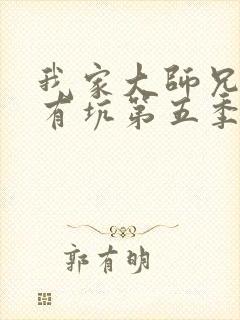 我家大師兄
有坑第五季
郭有明